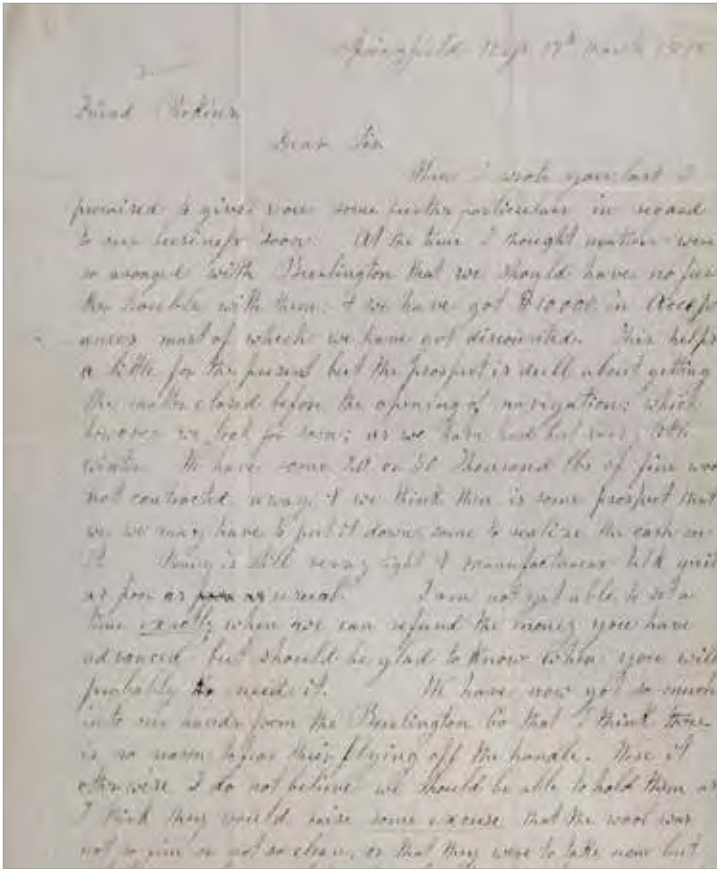 Springfield Mass 17th March
Friend Perkins
Dear Sir
When I wrote you last I
promised to give you some further particulars in regard
to our business soon. At the time I thought matters were
so aranged with Burlington that we should have no fur
ther trouble with them; & we have got $10000. in Accept
ances most of which we have got discounted. This helps
a little for the present but the prospect is dull about getting
the matter closed before the opening of navigation; which
however we look for soon; as we have had but very little
winter. We have some 20 or 30 Thousand lbs of fine woo
not contracted away, & we think there is some prospect that
we we may have to put it down some to realize the cash on
it. Money is still very tight & manufacturers talk quit
as poor as usual. I am not yet able to set a
time exactly when we can refund the money you have
advanced but should be glad to know when you will
probably need it. We have now got so much
into our hands from the Burlington Co that I think there
is no reason to fear their flying off the handle. Were it
otherwise I do not believe we should be able to hold them as
I think they would raise some excuse that the wool was
not so fine or not so clean, or that they were to take none but